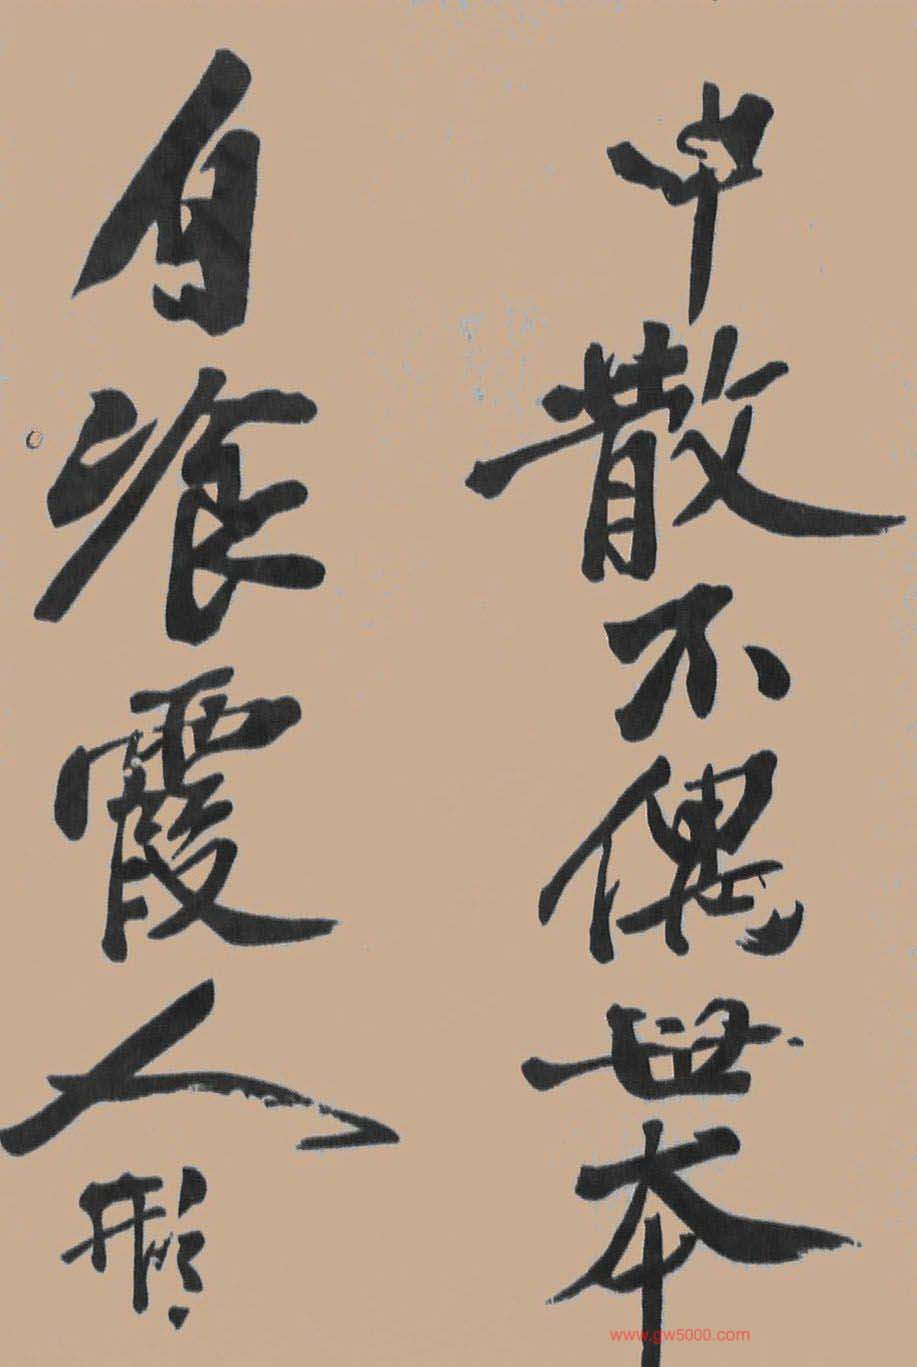 中散不偶世本
自飡霞人形
www.gw5000.com